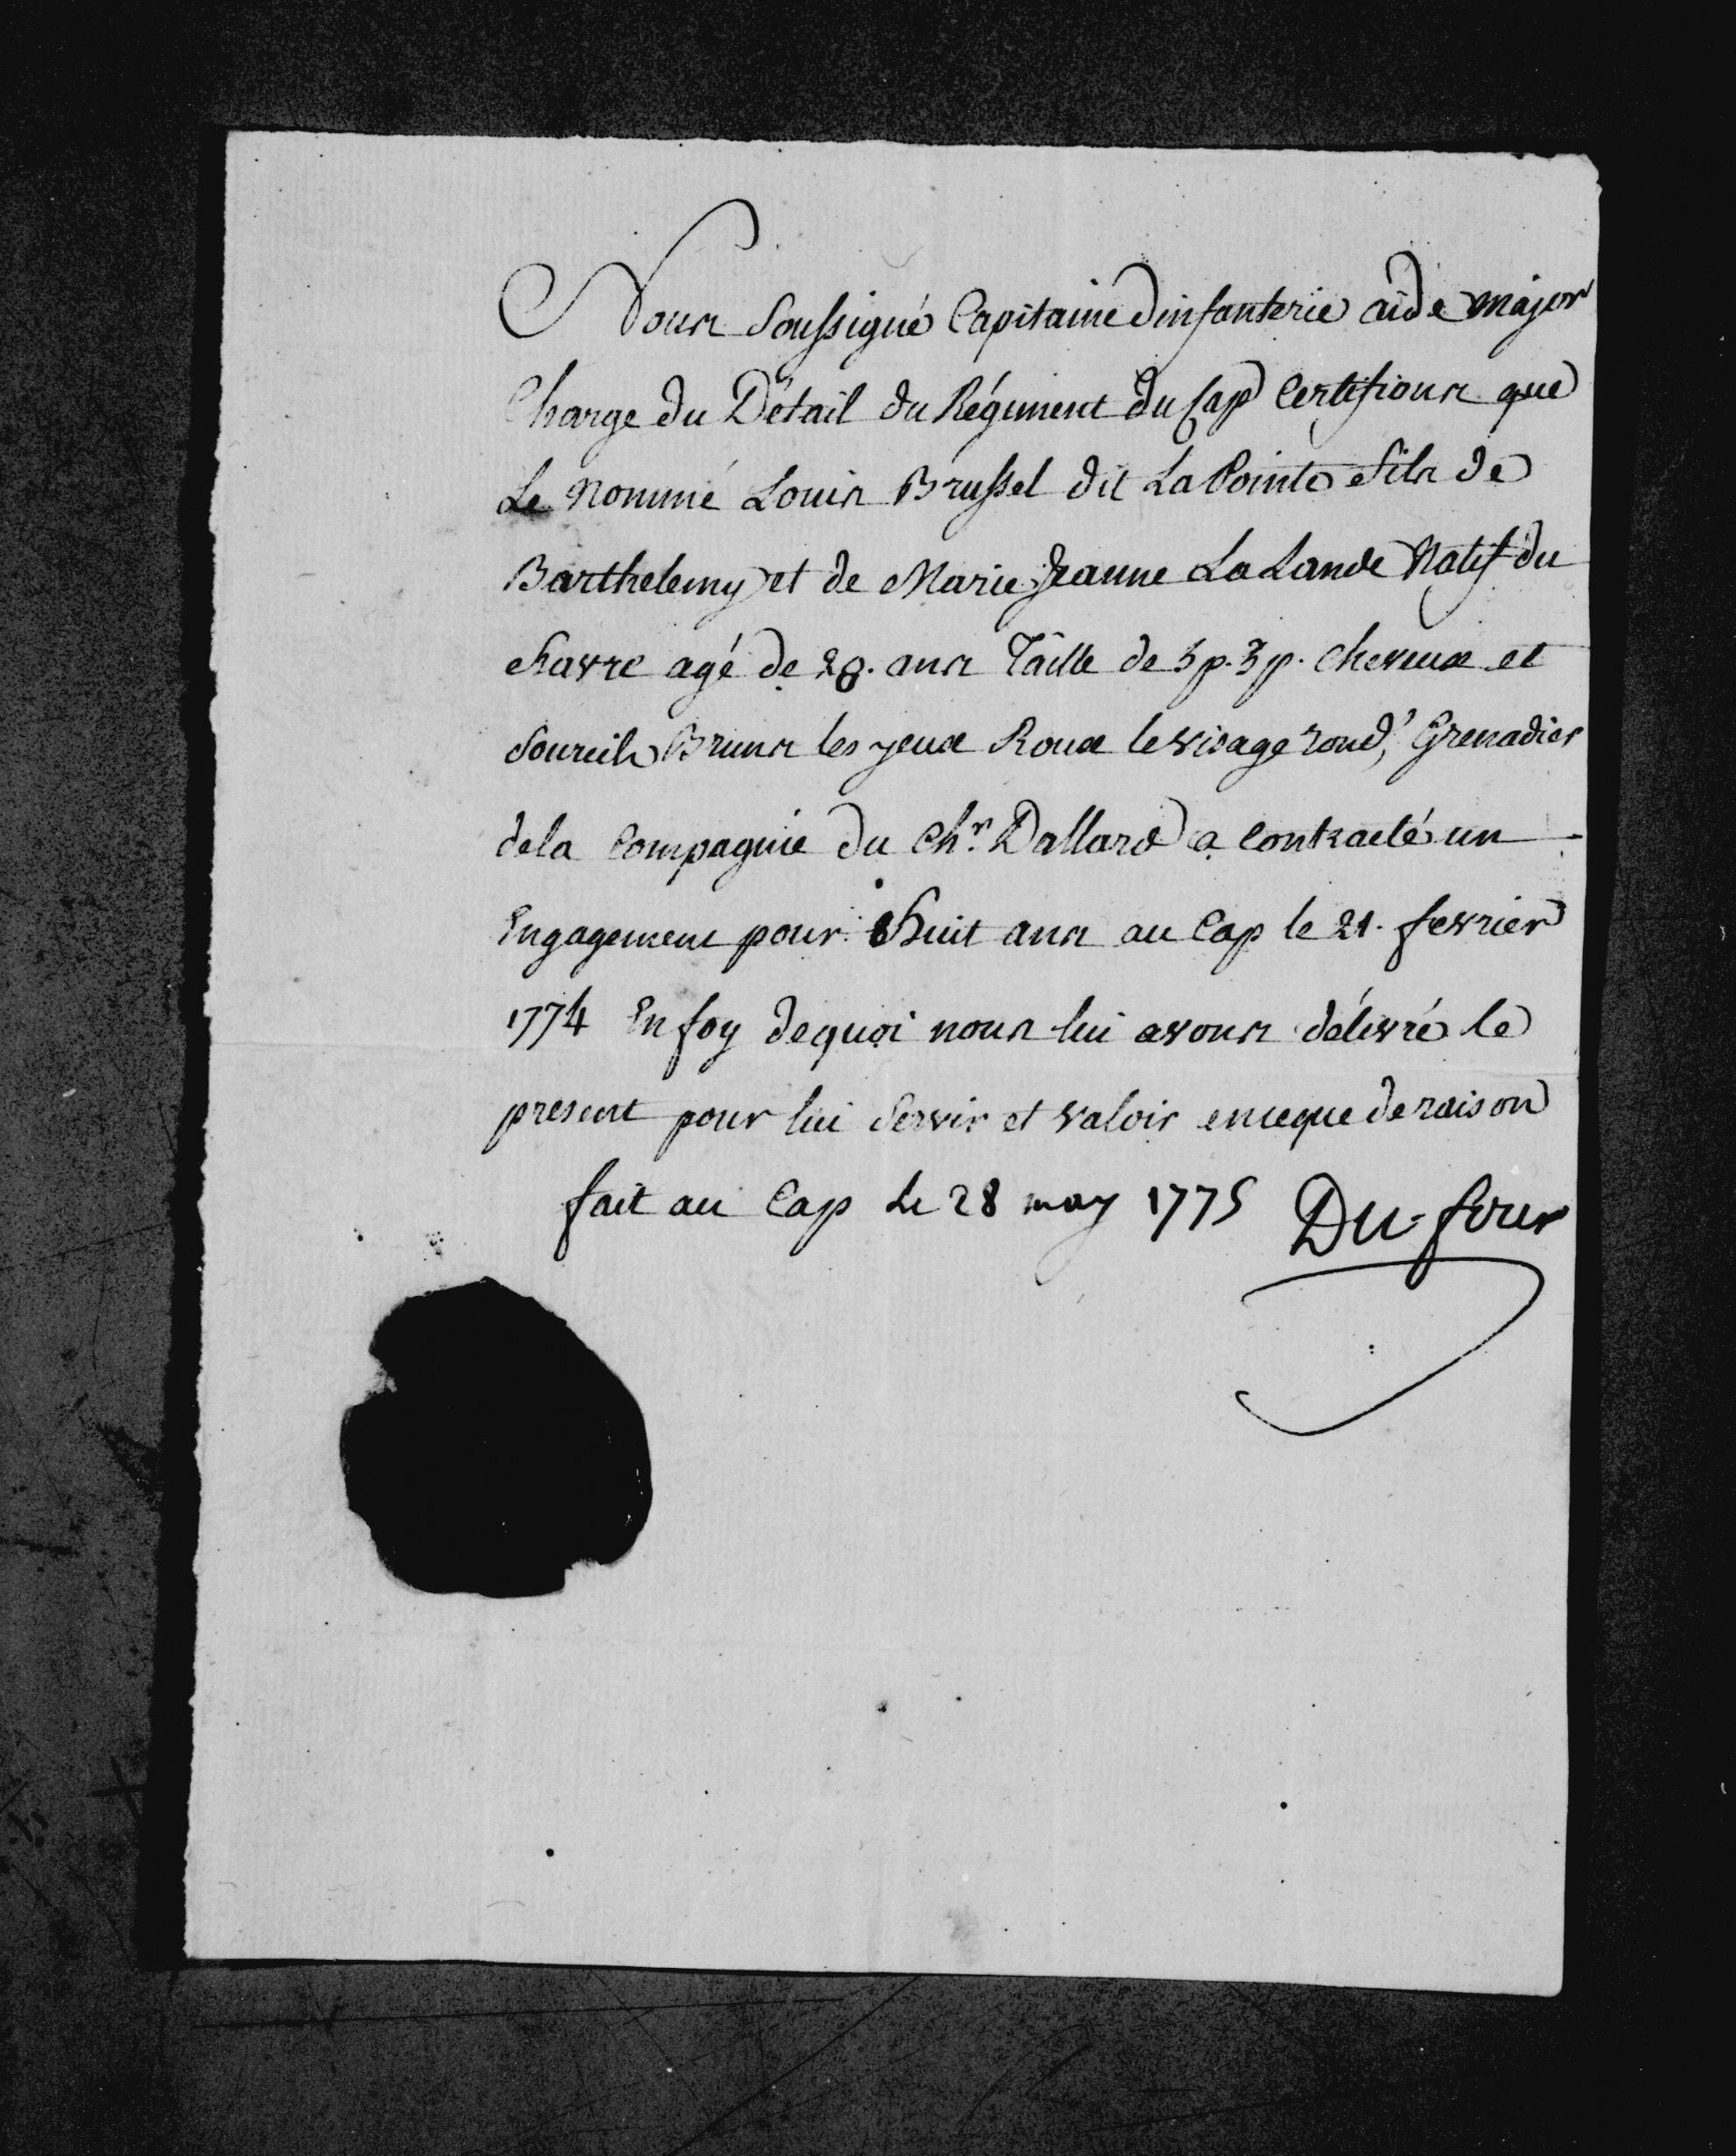 Nous Soussigné Capitaine dinfanterie aide major
Charge du Détail du Régiment du Cap Certifions que
Le Nommé Louis Brussel dit La Pointe fils de
Barthelemy et de Marie Jeanne La Lande Natif du
havre agé de 28. ans Taille de 5 p. 3 p. cheveux et
Sourcils Bruns les yeux Roux le visage rond, Grenadier
de la Compagnie du Chr. Dallard a contracté un
Engagement pour huit ans au Cap le 21. fevrier
1774 En foy de quoi nous lui avons délivré le
present pour lui Servir et valoir en ce que de raison
fait au Cap Le 28 may 1775 Du-four